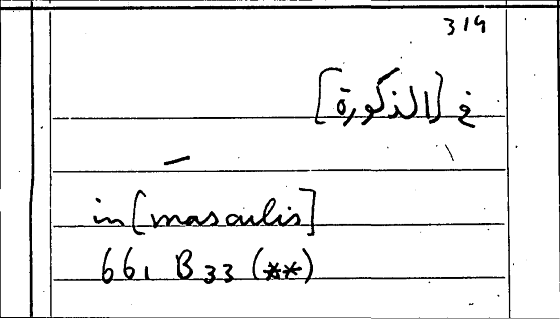 319
في [الذكورة]
in [masculis]
661 B 33 (**)